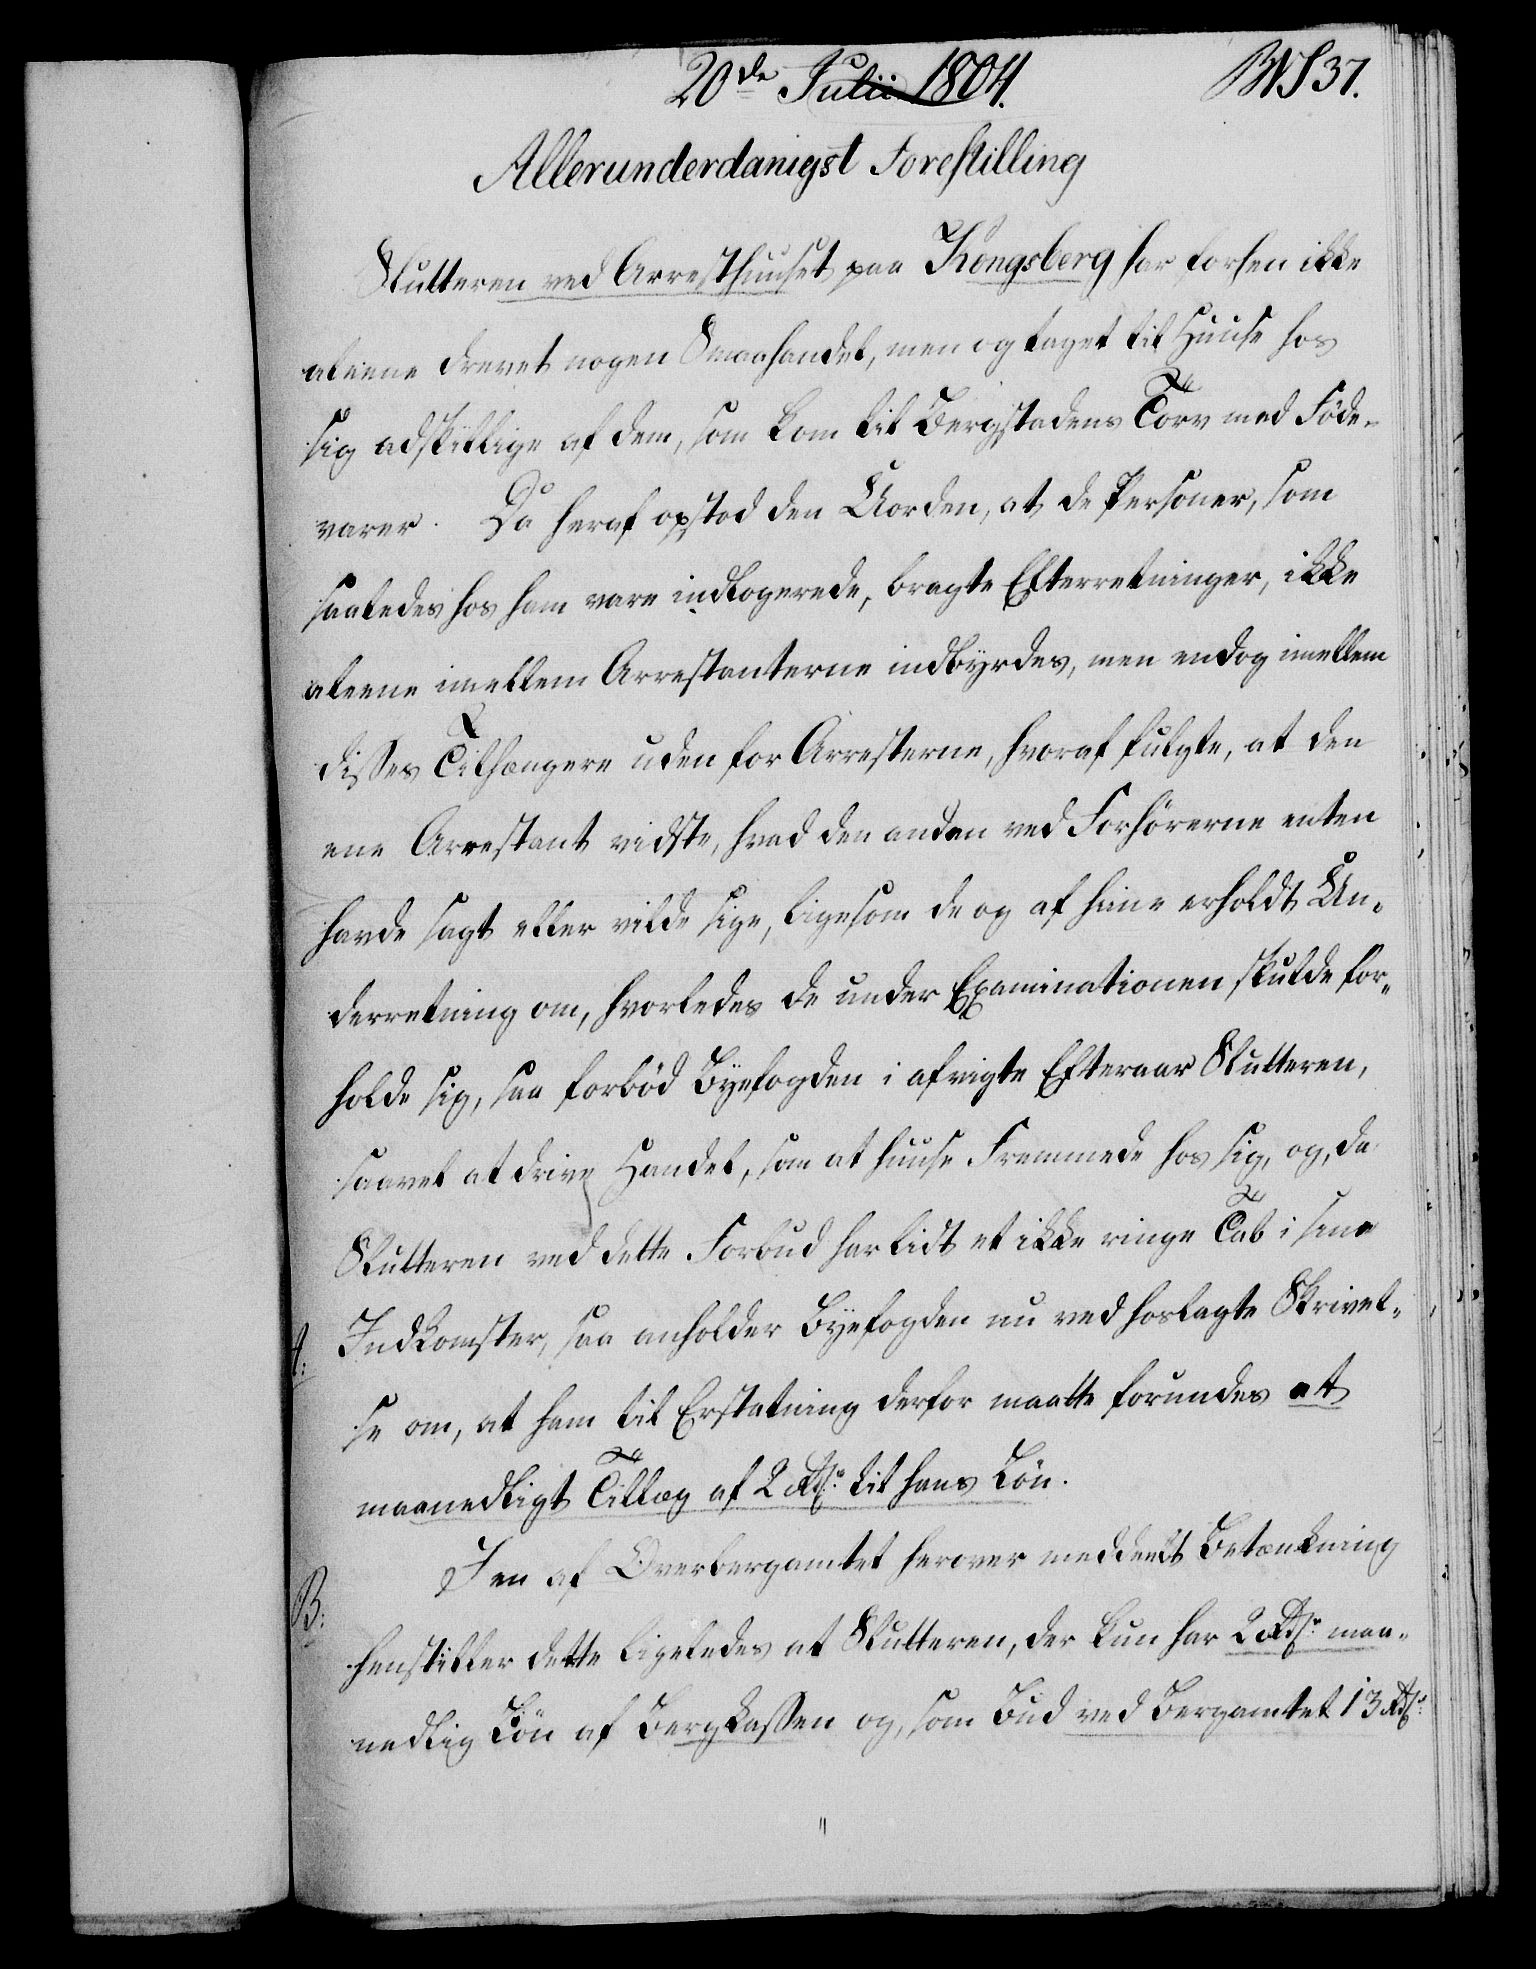 20de Julii 1804.
BWS 37.
Allerunderdanigst Forestilling
Slutteren ved Arresthuuset paa Kongsberg har forhen ikke
aleene drevet nogen Smaahandel, men og taget til Huuse hos
sig adskillige af dem, som kom til Bergstadens Torv med Föde-
varer. Da heraf opstod den Uorden, at de Personer, som
saaledes hos ham vare indlogerede, bragte Efterretninger, ikke
aleene imellem Arrestanterne indbyrdes, men endog imellem
disses Tilhængere uden for Arresterne, hvoraf fulgte, at den
ene Arrestant vidste, hvad den anden ved Forhörerne enten
havde sagt eller vilde sige, ligesom de og af hine erholdt Un-
derretning om, hvorledes de under Examinationen skulde for-
holde sig, saa forböd Byefogden i afvigte Efteraar Slutteren,
saavel at drive Handel, som at huuse Fremmede hos sig, og, da
Slutteren ved dette Forbud har lidt et ikke ringe Tab i sine
A:
Indkomster, saa anholder Byefogden nu ved hoslagte Skrivel-
se om, at ham til Erstatning derfor maatte forundes et
maanedligt Tillæg af 2 Rdr. til hans Lön.
B:
I en af Overbergamtet herover meddeelt Betænkning
henstiller dette ligeledes at Slutteren, der kun har 2 Rdr. maa-
nedlig Lön af Bergkassen og, som Bud ved Bergamtet 13 Rdr.